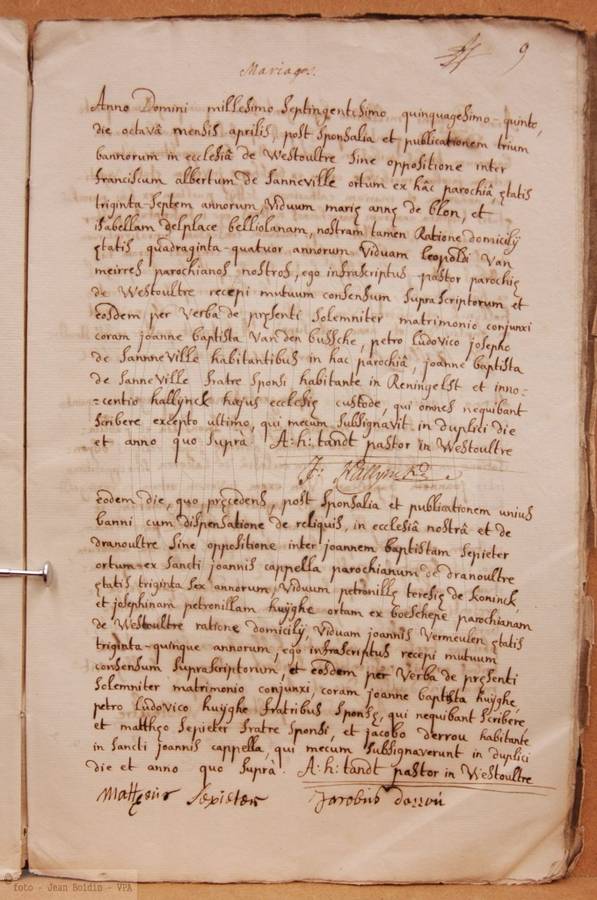 9
Mariages.
Anno Domini millesimo septingentesimo quinquagesimo quinto,
die octavâ mensis aprilis, post sponsalia et publicationem trium
bannorum in ecclesiâ de Westoultre sine oppositione inter
franciscum albertum de Sanneville ortum ex hâc parochiâ ętatis
triginta septem annorum, viduum marię annę de blon, et
isabellam delplace belliolanam, nostram tamen Ratione domicilij
ętatis quadraginta-quatuor annorum viduam leopoldi van
meirres parochianos nostros, ego infrascriptus pastor parochię
de Westoultre recepi mutuum consensum suprascriptorum et
eosdem per verba de pręsenti solemniter matrimonio conjunxi
coram joanne baptista van den bussche, petro ludovico josepho
de sannneville habitantibus in hac parochiâ, joanne baptista
de sanneville fratre sponsi habitante in Reningelst et inno-
-centio hallynck hujus ecclesię custode, qui omnes nequibant
scribere excepto ultimo, qui mecum subsignavit in duplici die
et anno quo supra A: h: tandt pastor in Westoultre
J: Hallynck
eodem die, quo pręcedens, post sponsalia et publicationem unius
banni cum dispensatione de reliquis, in ecclesiâ nostrâ et de
dranoultre sine oppositione inter joannem baptistam sepieter
ortum ex sancti joannis cappella parochianum de dranoultre
ętatis triginta sex annorum, viduum petronillę teresię de koninck,
et josephinam petronillam huyghe ortam ex boeschepe parochianam
de Westoultre ratione domicilij, viduam joannis vermeulen ętatis
triginta-quinque annorum, ego infrascriptus recepi mutuum
consensum suprascriptorum, et eosdem per verba de pręsenti
solemniter matrimonio conjunxi, coram joanne baptista huyghe,
petro ludovico huyghe fratribus sponsę, qui nequibant scribere
et matthęo sepieter fratre sponsi, et jacobo derrou habitante
in sancti joannis cappella, qui mecum subsignaverunt in duplici
die et anno quo suprà. A: h: tandt pastor in Westoultre
Jacobus
© foto - Jean Boidin - VPA